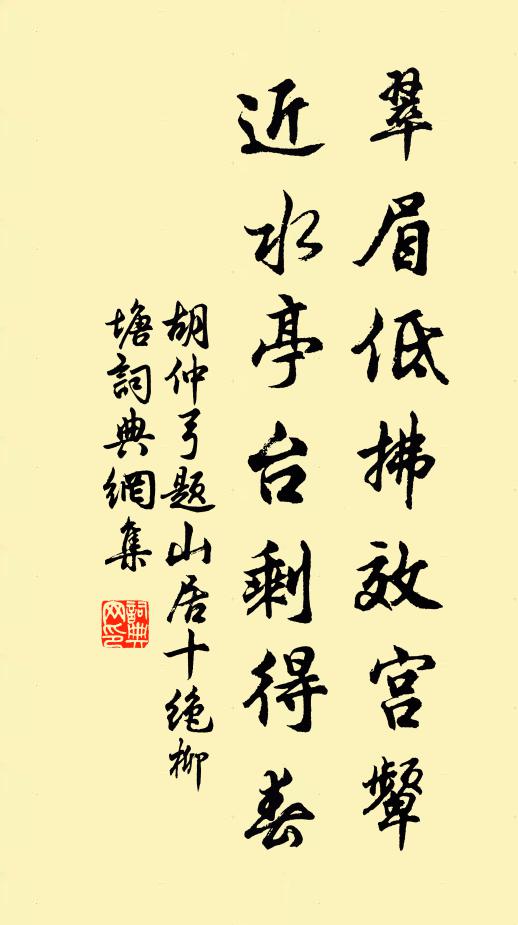 翠眉低拂效宫颦
近水亭台剩得春
胡仲弓题山居十绝柳
塘詞典網集
詞典
网印